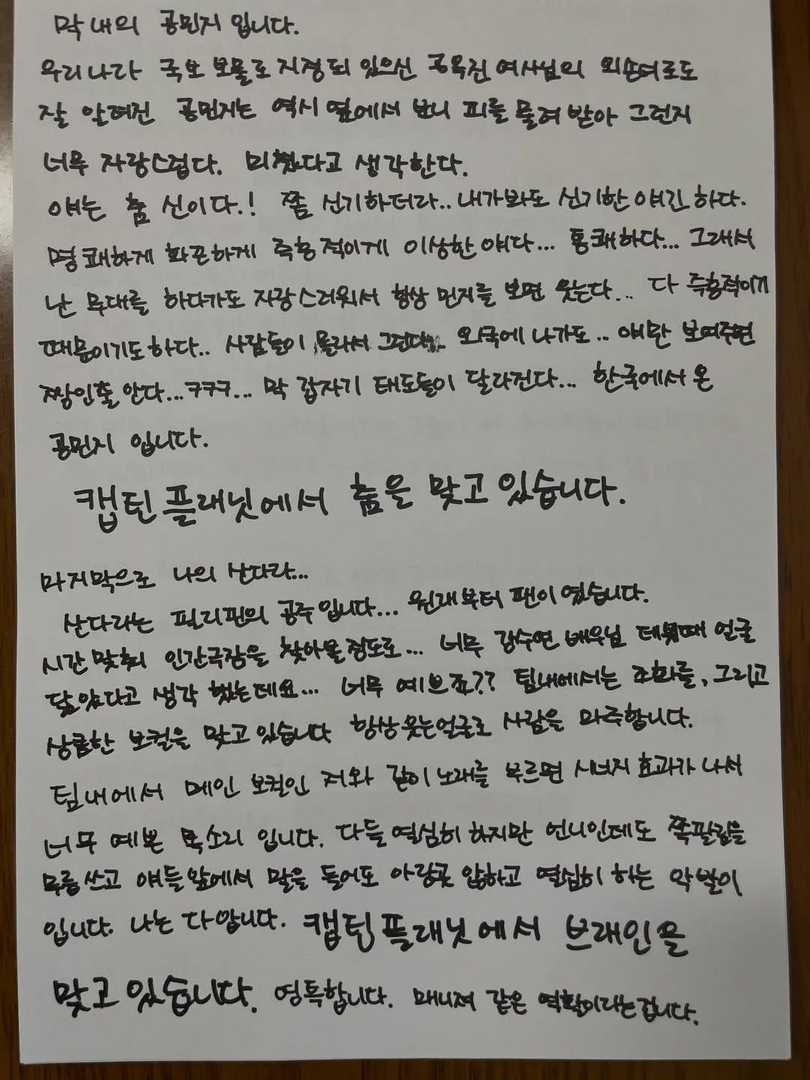 막내의 공민지 입니다.
우리나라 국보 보물로 지정되 있으신 공옥진 여사님의 외손녀로도
잘 알려진 공민지는 역시 옆에서 보니 피를 물려 받아 그런지
너무 자랑스럽다. 미쳤다고 생각한다.
얘는 춤 신이다.! 쫌 신기하더라.. 내가봐도 신기한 얘긴 하다.
명쾌하게 화끈하게 즉흥적이게 이상한 얘다... 통쾌하다... 그래서
난 무대를 하다가도 자랑스러워서 항상 민지를 보면 웃는다... 다 즉흥적이기
때문이기도하다.. 사람들이 몰라서 그런다.. 외국에 나가도.. 얘만 보여주면
짱인줄 안다...ㅋㅋㅋ... 막 갑자기 태도들이 달라진다... 한국에서 온
공민지 입니다.
캡틴 플래닛에서 춤을 맞고 있습니다.
마지막으로 나의 산다라...
산다라는 필리핀의 공주입니다... 원래부터 팬이였습니다.
시간 맞춰 인간극장을 찾아볼정도로... 너무 강수연 배우님 데뷔때 얼굴
닮았다고 생각 했는데요... 너무 예쁘죠?? 팀내에서는 조화를, 그리고
상큼한 보컬을 맞고있습니다 항상웃는얼굴로 사람을 마주합니다.
팀내에서 메인 보컬인 저와 같이 노래를 부르면 시너지 효과가 나서
너무 예쁜 목소리 입니다. 다들 열심히 하지만 언니인데도 쪽팔림을
무릅쓰고 얘들앞에서 말을 들어도 아랑곳 않하고 열심히 하는 악발이
입니다. 나는 다압니다. 캡틴플래닛에서 브래인을
맞고 있습니다. 영특합니다. 매니져 같은 역할이라는겁니다.